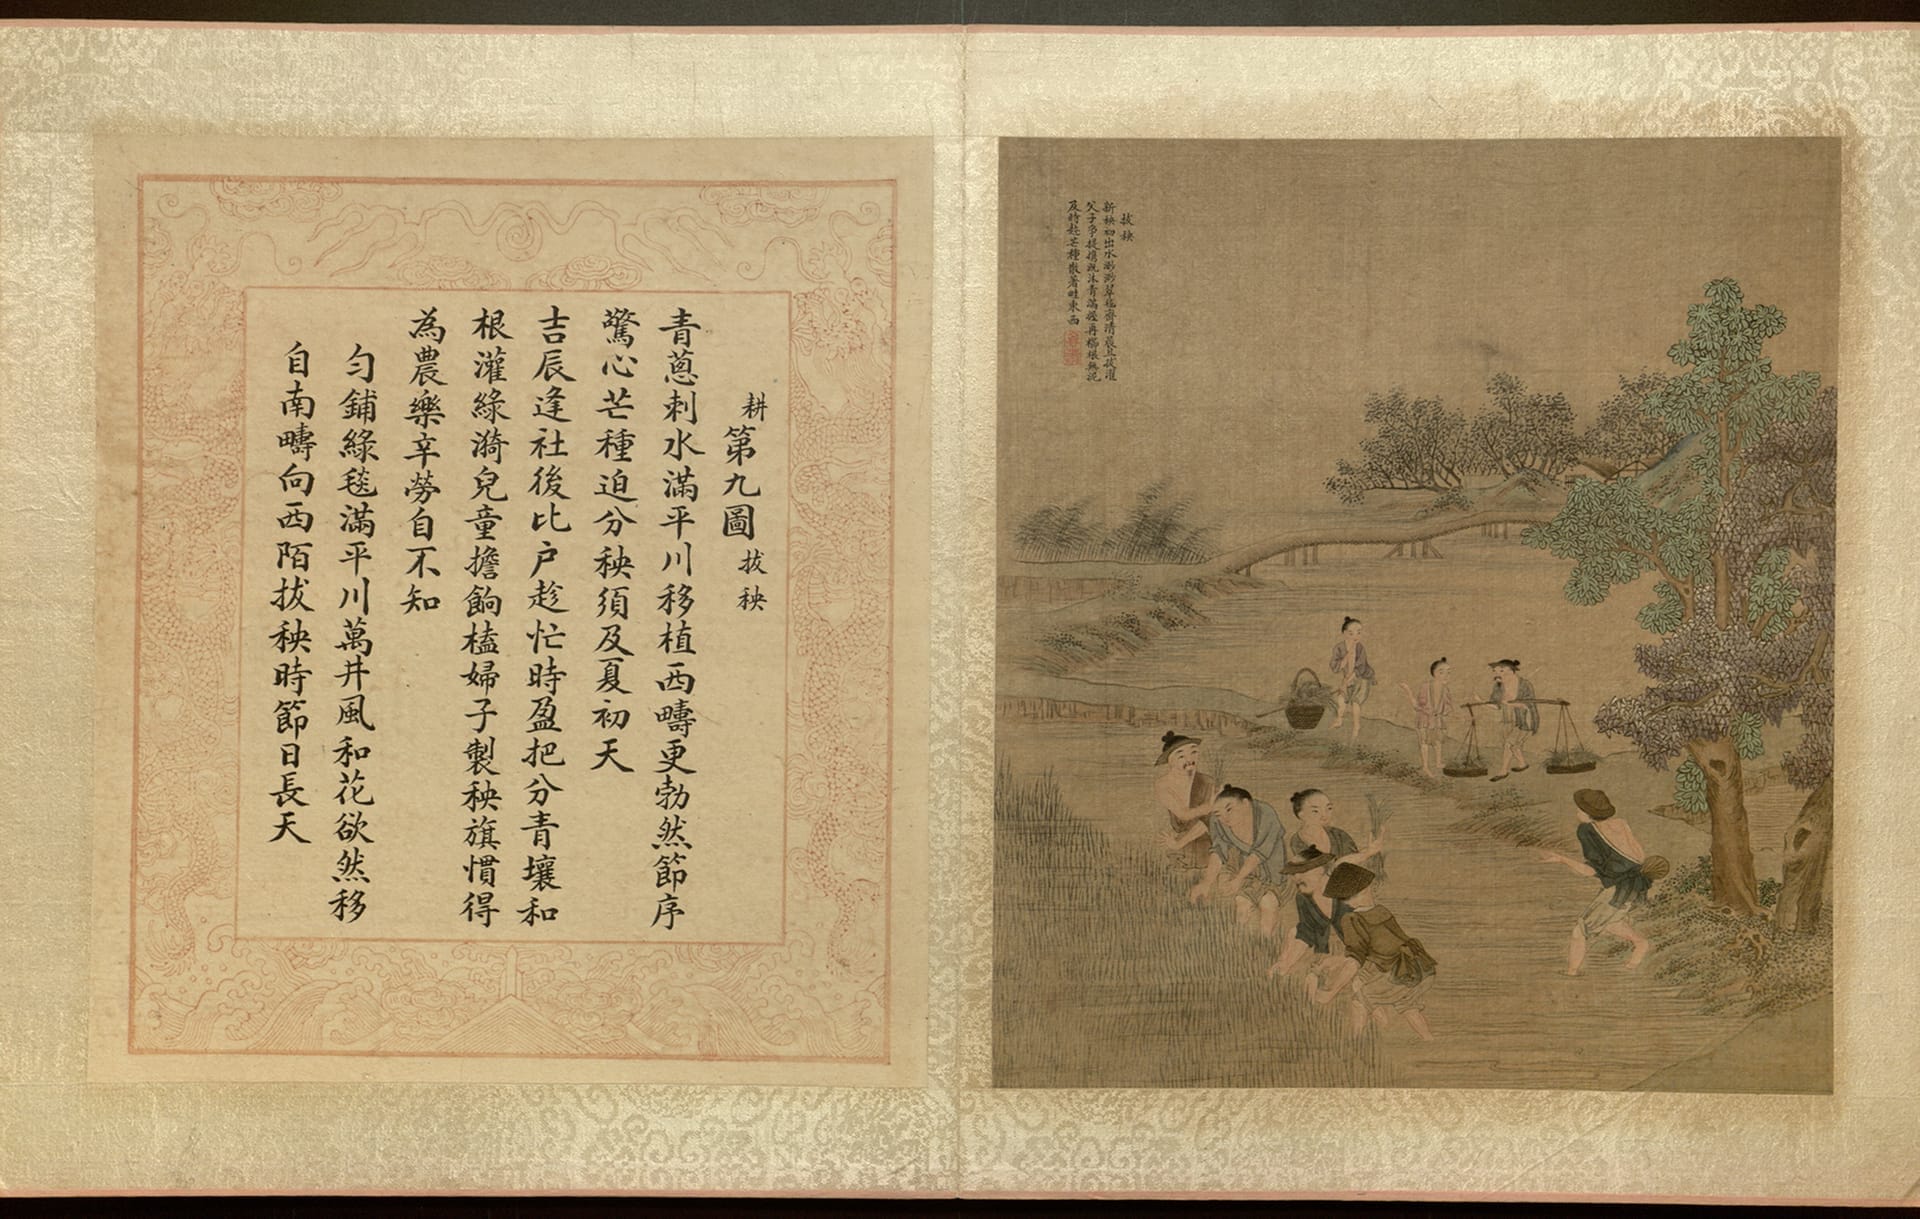 拔秧
新秧初出水渺渺翠毯齊清晨且拔擢
父子爭提攜既沐青滿握再櫛根無泥
及時趁芒種散著畦東西
耕第九圖拔秧
青蔥刺水滿平川移植西疇更勃然節序
驚心芒種迫分秧須及夏初天
吉辰逢社後比户趁忙時盈把分青壤和
根灌綠漪兒童擔餉榼婦子製秧旗慣得
為農樂辛勞自不知
勻鋪綠毯滿平川萬井風和花欲然移
自南疇向西陌拔秧時節日長天